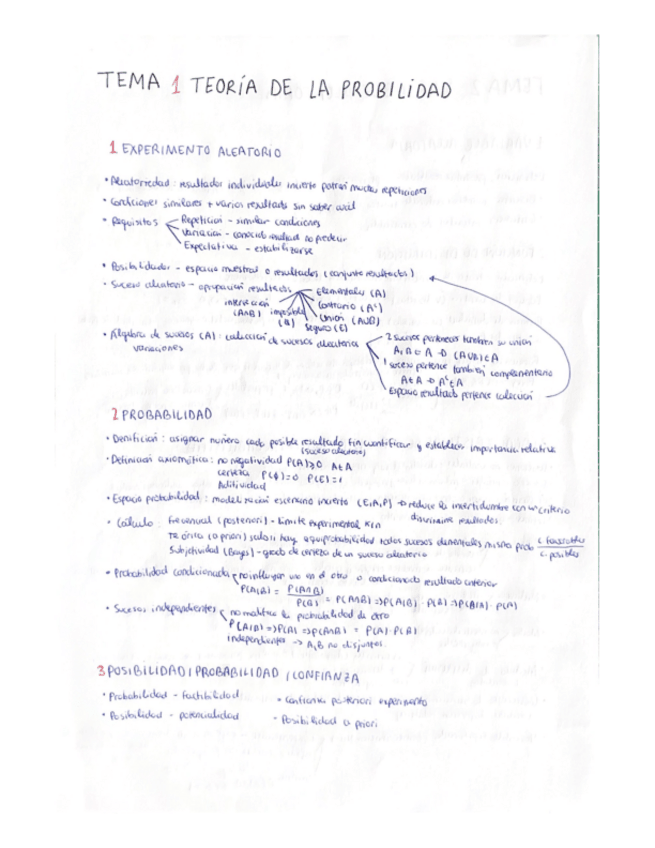 TEMA 1 TEORÍA DE LA PROBILIDAD
1 EXPERIMENTO ALEATORIO
• Aleatoriedad: resultados individuales incierto patrón muchas repeticiones
• Condiciones similares + varios resultados sin saber cual
• Requisitos
Repetición - similar condiciones
Variación - conocido resultado no predecir
Expectativa - estabilizarse
• Posibilidades - espacio muestral o resultados (conjunto resultados)
• Suceso aleatorio - agrupación resultados
Elementales (A)
Contrario (Aᶜ)
Unión (A∪B)
Seguro (E)
imposible
intersección
(A∩B)
• Álgebra de sucesos (A): colección de sucesos aleatorios
variaciones
2 sucesos pertenecen también su unión
(A∪B)∈A
1 suceso pertenece también complementario
A∈A → Aᶜ∈A
Espacio resultado pertenece colección
2 PROBABILIDAD
• asignar número cada posible resultado fin cuantificar y establecer importancia relativa
(suceso aleatorio)
• Definición axiomática: no negatividad P(A)≥0 A∈A
certeza P(ϕ)=0 P(E)=1
Aditividad
• Espacio probabilidad: escenario incierto (E,A,P) → reduce la incertidumbre con un criterio
discrimine resultados.
• Cálculo: Frecuencial (posteriori) - Límite experimental K/n
Teórica (a priori) solo si hay equiprobabilidad todos sucesos elementales misma prob c. favorables
c. posibles
Subjetividad (Bayes) - grado de certeza de un suceso aleatorio
• Probabilidad condicionada no influyen uno en el otro o condicionado resultado anterior
P(A|B) = P(A∩B)
P(B) = P(A∩B) => P(A|B) · P(B) => P(B|A) · P(A)
• Sucesos independientes no modifica la probabilidad de otro
P(A|B) => P(A) => P(A∩B) = P(A) · P(B)
independientes -> A,B no disjuntos.
3 POSIBILIDAD / PROBABILIDAD / CONFIANZA
• Probabilidad - factibilidad
• Confianza posteriori experimento
• Posibilidad - potencialidad
- Posibilidad a priori